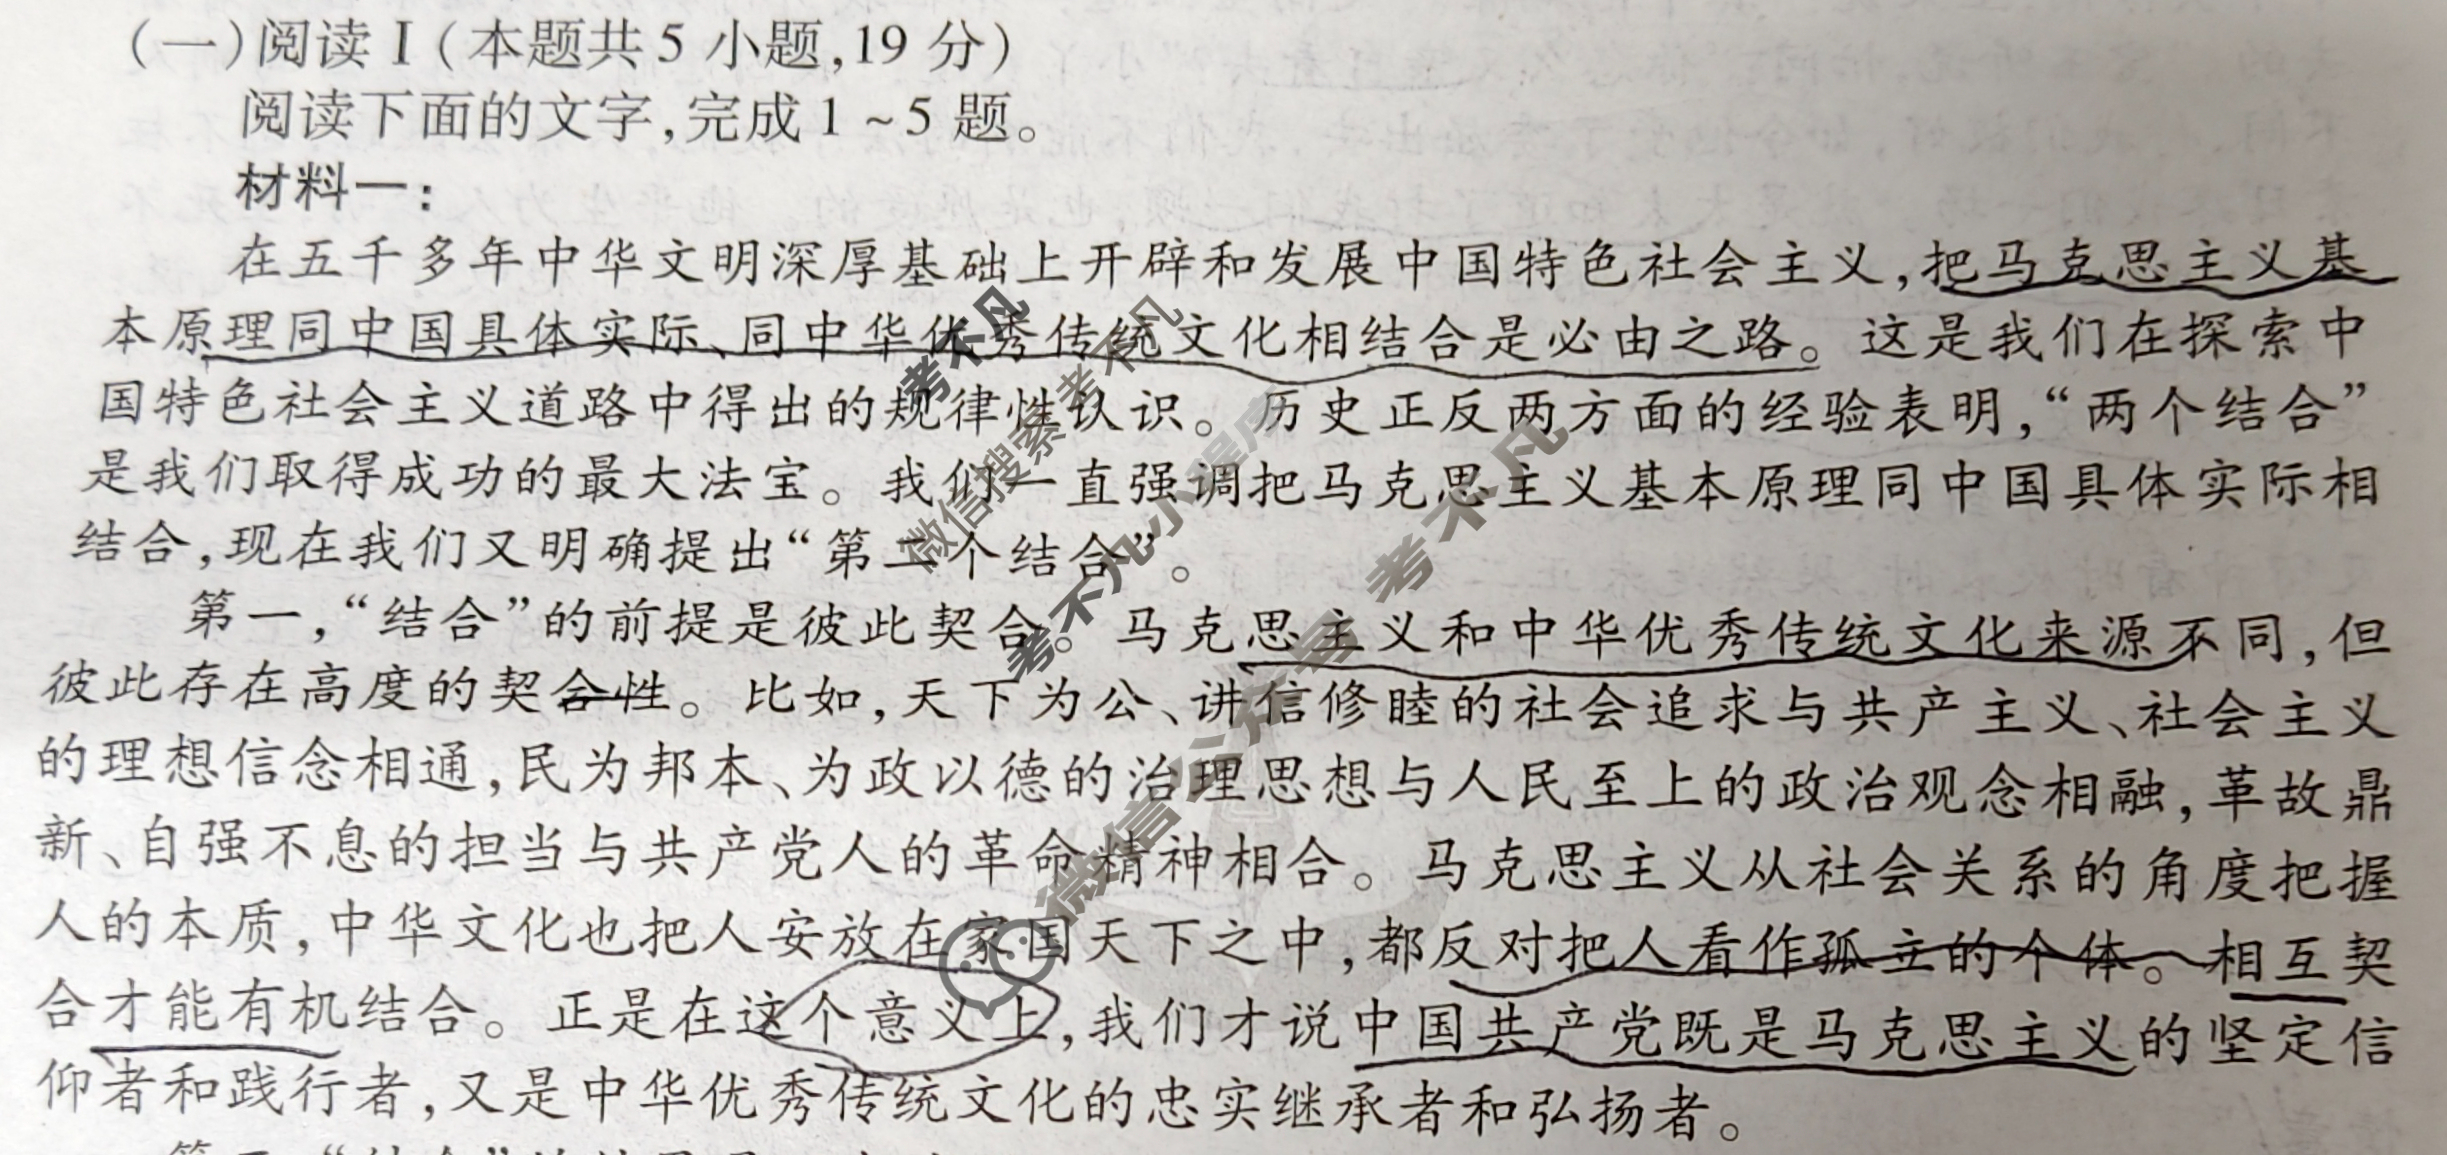 （一）阅读Ⅰ（本题共5小题，19分）
阅读下面的文字，完成1~5题。
材料一：
在五千多年中华文明深厚基础上开辟和发展中国特色社会主义，把马克思主义基
本原理同中国具体实际、同中华优秀传统文化相结合是必由之路。这是我们在探索中
国特色社会主义道路中得出的规律性认识。历史正反两方面的经验表明，“两个结合”
是我们取得成功的最大法宝。我们一直强调把马克思主义基本原理同中国具体实际相
结合，现在我们又明确提出“第二个结合”。
第一，“结合”的前提是彼此契合。马克思主义和中华优秀传统文化来源不同，但
彼此存在高度的契合性。比如，天下为公、讲信修睦的社会追求与共产主义、社会主义
的理想信念相通，民为邦本、为政以德的治理思想与人民至上的政治观念相融，革故鼎
新、自强不息的担当与共产党人的革命精神相合。马克思主义从社会关系的角度把握
人的本质，中华文化也把人安放在家国天下之中，都反对把人看作孤立的个体。相互契
合才能有机结合。正是在这个意义上，我们才说中国共产党既是马克思主义的坚定信
仰者和践行者，又是中华优秀传统文化的忠实继承者和弘扬者。
考不凡
微信搜索考不凡
考不凡小程序
微信公众号 考不凡